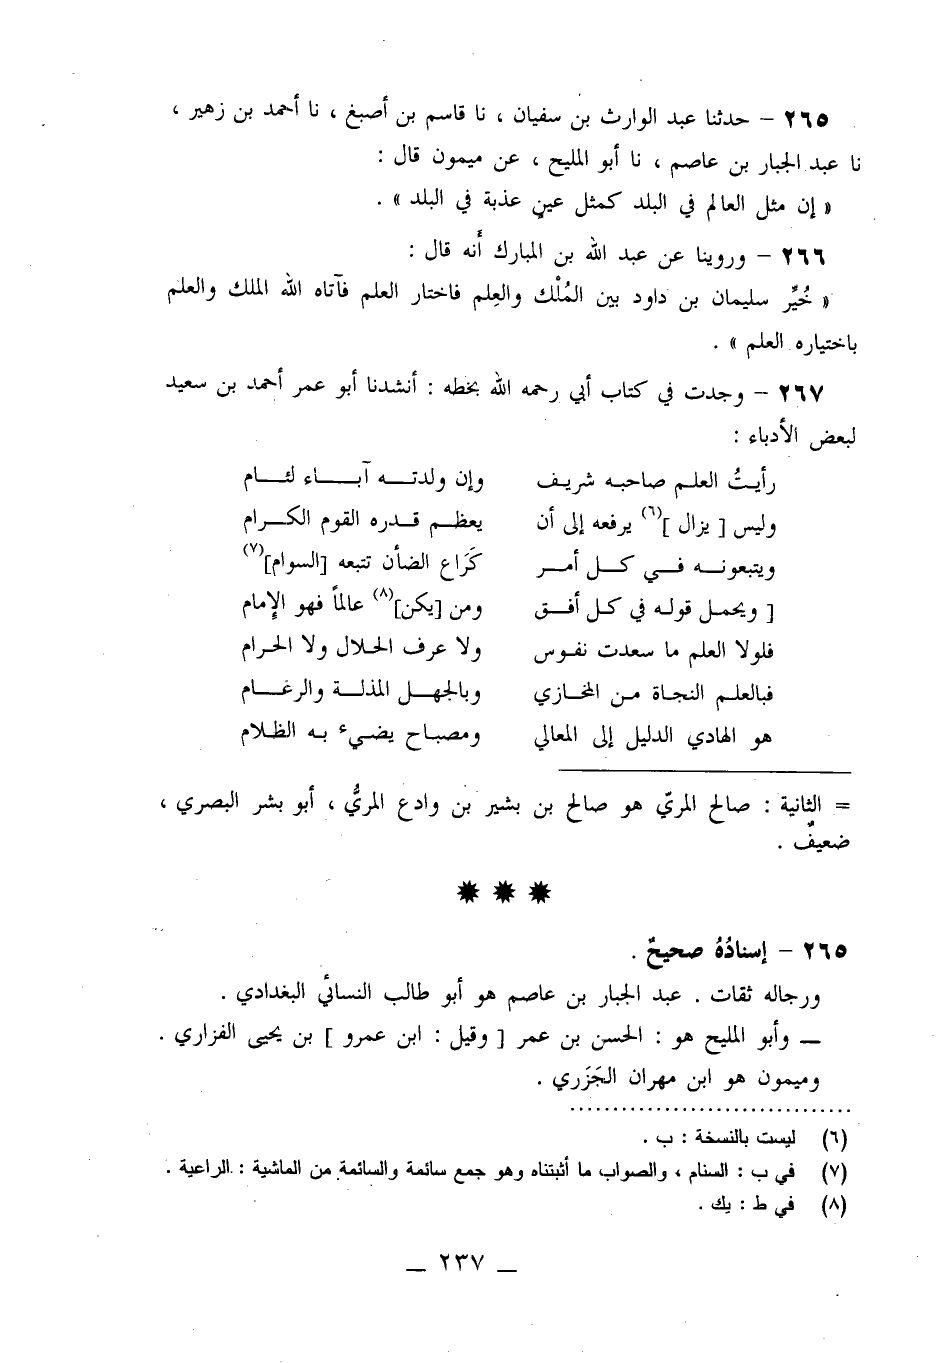 ٢٦٥ – حدثنا عبد الوارث بن سفيان ، نا قاسم بن أصبغ ، نا أحمد بن زهير ،
نا عبد الجبار بن عاصم ، نا أبو المليح ، عن ميمون قال :
« إن مثل العالم في البلد كمثل عينٍ عذبة في البلد » .
٢٦٦ – وروينا عن عبد الله بن المبارك أنه قال :
« خُيِّر سليمان بن داود بين المُلْك والعِلم فاختار العلم فآتاه الله الملك والعلم
باختياره العلم » .
٢٦٧ – وجدت في كتاب أبي رحمه الله بخطه : أنشدنا أبو عمر أحمد بن سعيد
لبعض الأدباء :
رأيتُ العلم صاحبه شريف وإن ولدته آباء لئام
وليس [ يزال ](٦) يرفعه إلى أن يعظم قدره القوم الكرام
ويتبعونه في كل أمر كَرَاع الضأن تتبعه [السوام](٧)
[ ويحمل قوله في كل أفق ومن [يكن](٨) عالماً فهو الإمام
فلولا العلم ما سعدت نفوس ولا عرف الحلال ولا الحرام
فبالعلم النجاة من المخازي وبالجهل المذلة والرغام
هو الهادي الدليل إلى المعالي ومصباح يضيء به الظلام
= الثانية : صالح المريّ هو صالح بن بشير بن وادع المريُّ ، أبو بشر البصري ،
ضعيفٌ .
٢٦٥ – إسنادُهُ صحيحٌ .
ورجاله ثقات . عبد الجبار بن عاصم هو أبو طالب النسائي البغدادي .
— وأبو المليح هو : الحسن بن عمر [ وقيل : ابن عمرو ] بن يحيى الفزاري .
وميمون هو ابن مهران الجَزَري .
(٦) ليست بالنسخة : ب .
(٧) في ب : السنام ، والصواب ما أثبتناه وهو جمع سائمة والسائمة من الماشية : الراعية .
(٨) في ط : يك .
— ٢٣٧ —